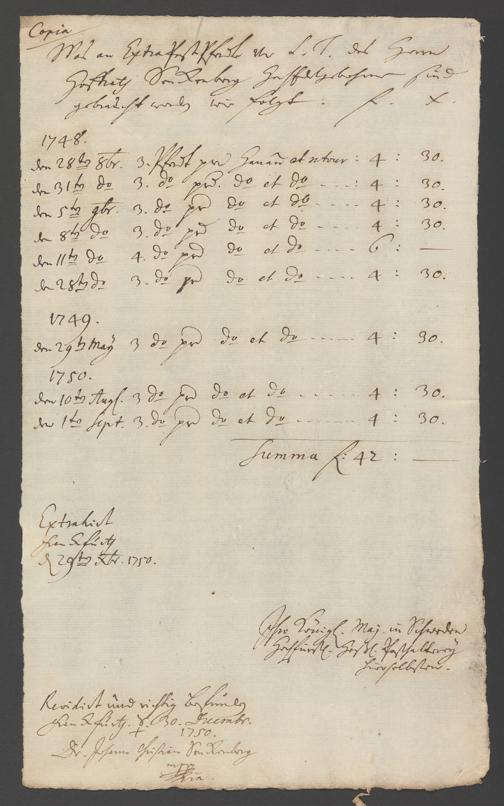 Copia
Was an Extra Post Pferde vor S. T. des Herrn
Hoffrath Senckenberg Hochedelgebohrne sind
gebraucht worden wie folgt: f. x.
1748.
den 28ten 8br. 3. Pferdt pro Hanau et retour: 4: 30.
den 31ten do 3. do pro. do et do ....: 4: 30.
den 5ten 9br. 3. do pro do et do .... 4: 30.
den 8ten do 3. do pro do et do .... 4: 30.
den 11ten do 4. do pro do et do .... 6: —
den 28ten do 3. do pr do et do .... 4: 30.
1749.
den 29ten May 3 do pro do et do .... 4: 30.
1750.
den 10ten Aug. 3 do pro do et do .... 4: 30.
den 1ten Sept. 3. do pro do et do .... 4: 30.
Summa f: 42: —
Extrahirt
Franckfurth
d 29ten Xbr. 1750.
Ihro Königl. Maj. in Schweden
Hochfürstl. Hessl. Posthalterey
hierselbsten.
Revidirt und richtig befunden
Franckfurth d. 30. Decembr.
1750.
Dr. Johann Christian Senckenberg
mpp